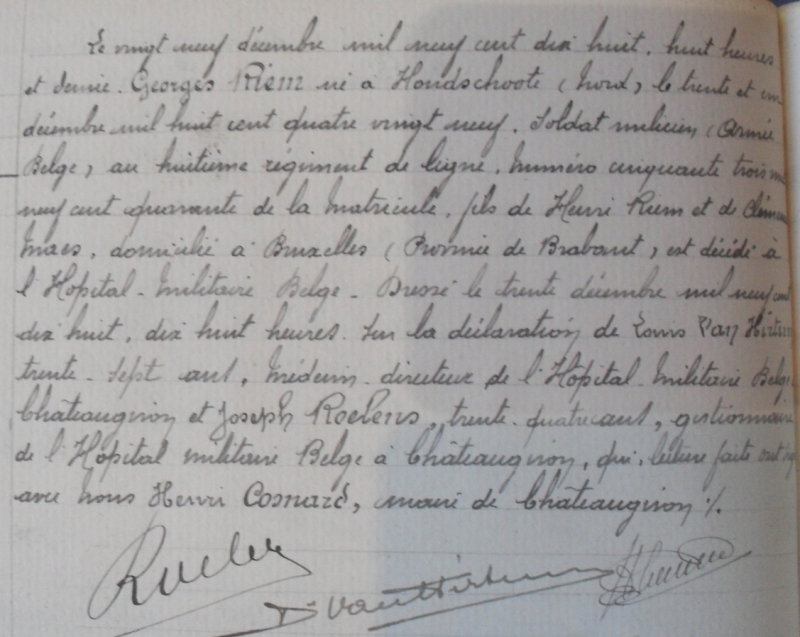 Le vingt neuf décembre mil neuf cent dix huit, huit heures
et demie. Georges Riem né à Hondschoote (Nord) le trente et un
décembre mil huit cent quatre vingt neuf. Soldat milicien (Armée
Belge) au huitième régiment de ligne, numéro cinquante trois mil
neuf cent quarante de la matricule, fils de Henri Riem et de
Maes, domicilié à Bruxelles (Province de Brabant) est décédé à
l'Hopital - Militaire Belge - Dressé le trente décembre mil neuf cent
dix huit, dix huit heures. Sur la déclaration de Louis Van
trente - sept ans, Médecin - directeur de l'Hôpital - Militaire Belge
Châteaugiron et Joseph Roelens, trente - quatre ans, gestionnaire
de l'Hôpital militaire Belge à Châteaugiron, qui, lecture faite ont
avec nous Henri Cosnard, maire de Châteaugiron ./.